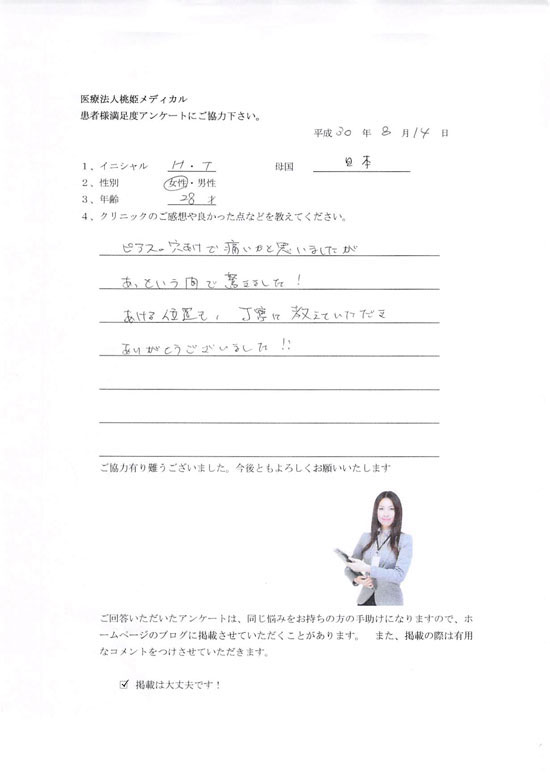 医療法人桃姫メディカル
患者様満足度アンケートにご協力下さい。
平成 30 年 8 月 14 日
1、イニシャル H・T 母国 日本
2、性別 女性・男性
3、年齢 28才
4、クリニックのご感想や良かった点などを教えてください。
ピアスの穴あけで痛いかと思いましたが
あっという間で驚きました!
あける位置も、丁寧に教えていただき
ありがとうございました!!
ご協力有り難うございました。今後ともよろしくお願いいたします
ご回答いただいたアンケートは、同じ悩みをお持ちの方の手助けになりますので、ホ
ームページのブログに掲載させていただくことがあります。 また、掲載の際は有用
なコメントをつけさせていただきます。
☑ 掲載は大丈夫です!